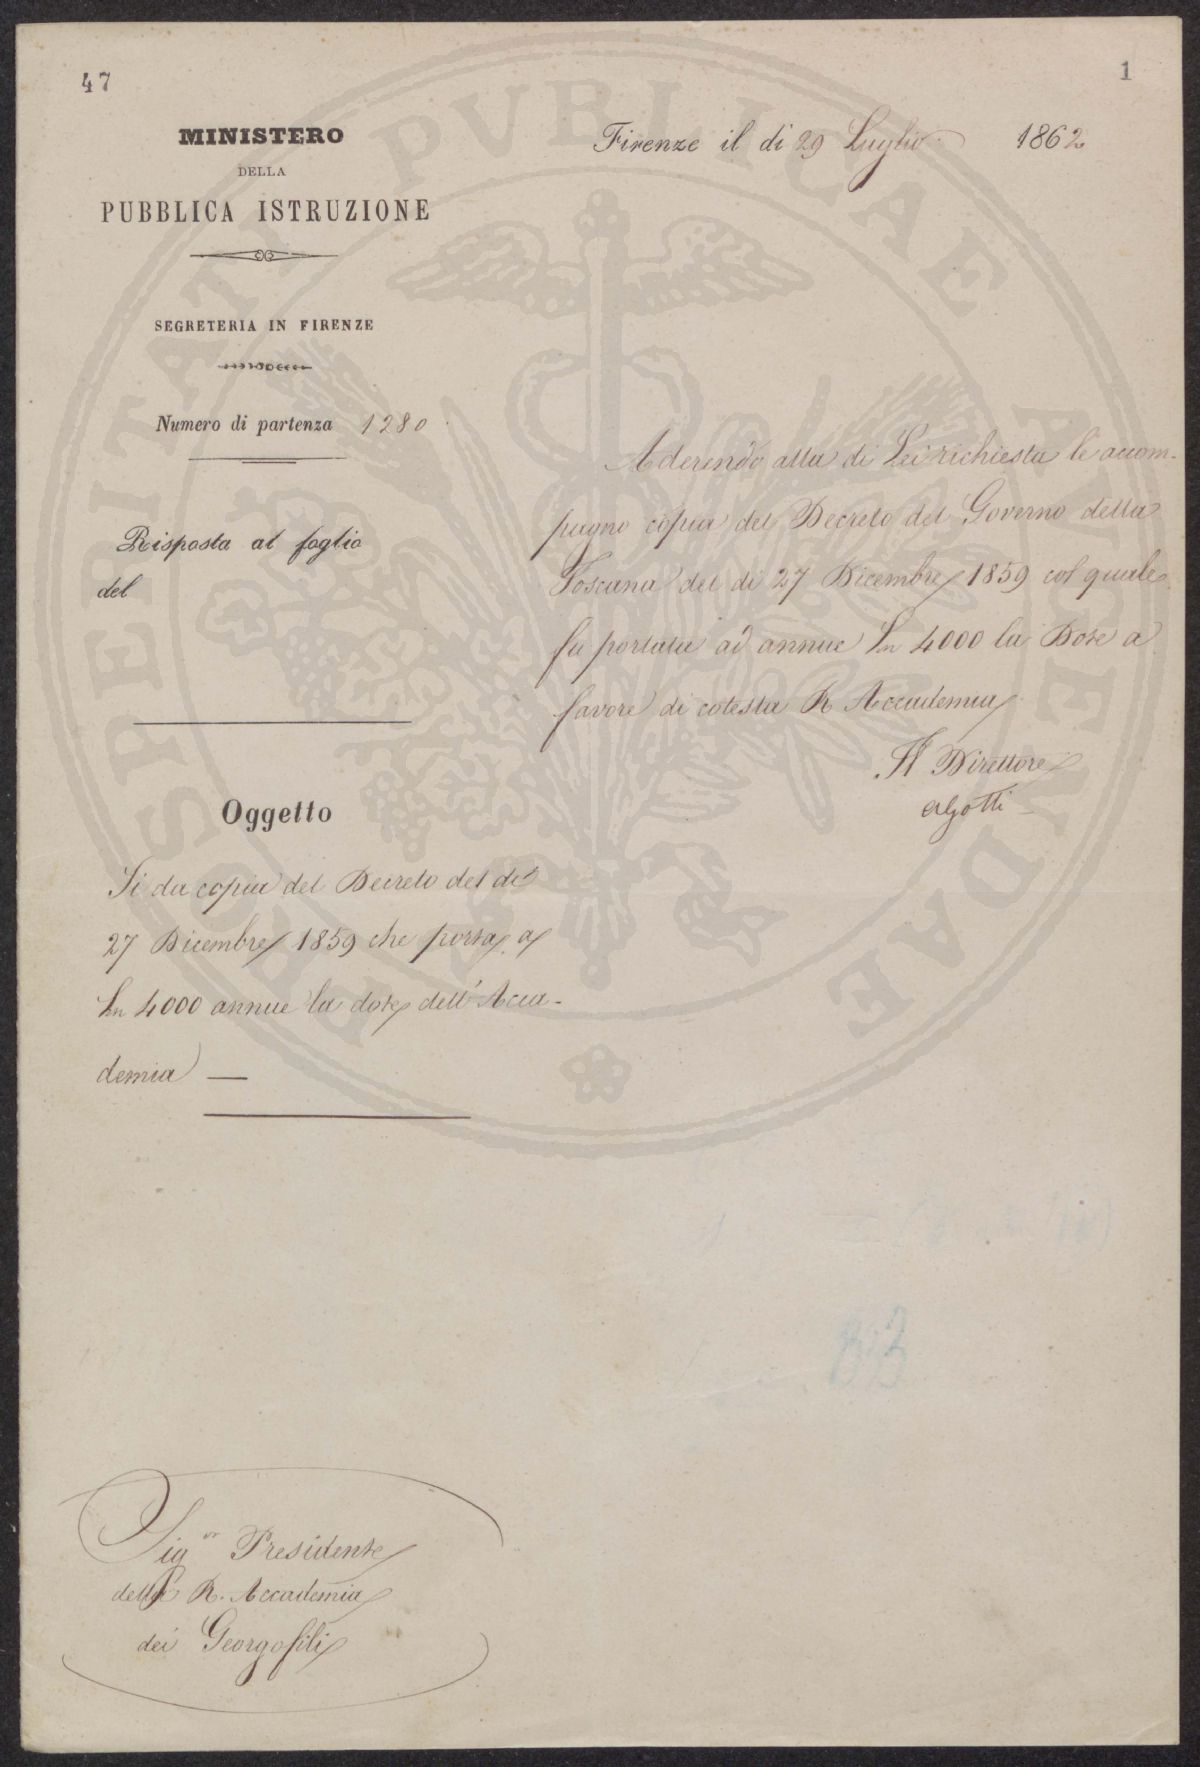 47
1
MINISTERO
DELLA
PUBBLICA ISTRUZIONE
SEGRETERIA IN FIRENZE
Numero di partenza 1280
Risposta al foglio
del
Oggetto
Si da copia del Decreto del dì
27 Dicembre 1859 che porta a
Ln 4000 annue la dote dell'Acca-
demia —
Firenze il di 29 Luglio 1862
Aderendo alla di Lei richiesta le accom-
pagno copia del Decreto del Governo della
Toscana del di 27 Dicembre 1859 col quale
fu portata ad annue Ln 4000 la Dote a
favore di cotesta R Accademia
Il Direttore
Sigr Presidente
della R. Accademia
dei Georgofili
PROSPERITATI PVBLICAE AVGENDAE